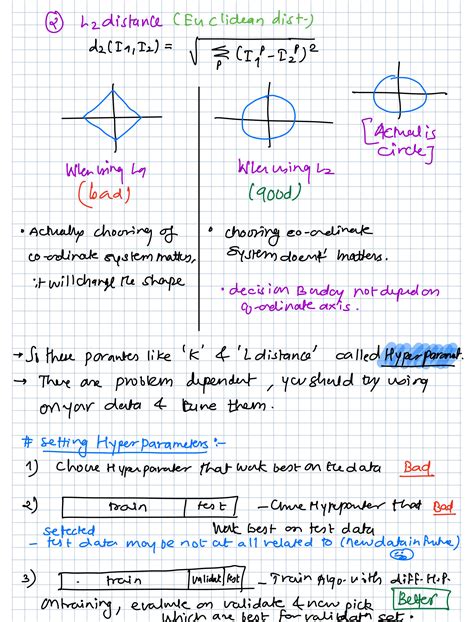 ② L2 distance (Euclidean dist-)
d2(I1, I2) = √ Σp (I1^p - I2^p)²
[Actual is
circle]
When using L1
(bad)
When using L2
(good)
• Actually choosing of
co-ordinate system matters,
it will change the shape
• choosing co-ordinate
system doesnt' matters.
• decision Bundary not depend on
co-ordinate axis.
→ So these like 'K' & 'L distance' called
→ There are problem dependent, you should try using
on your data & tune them.
# setting Hyperparameters :-
1) Choose Hyperparameter that work best on the data Bad
2) train test - that Bad
work best on test data
selected
- test data may be not at all related to (New data in future)
3) train validat test - Train Algo. with diff. H.P.
on training, evaluate on validate & now pick Better
which are best for validatn set.